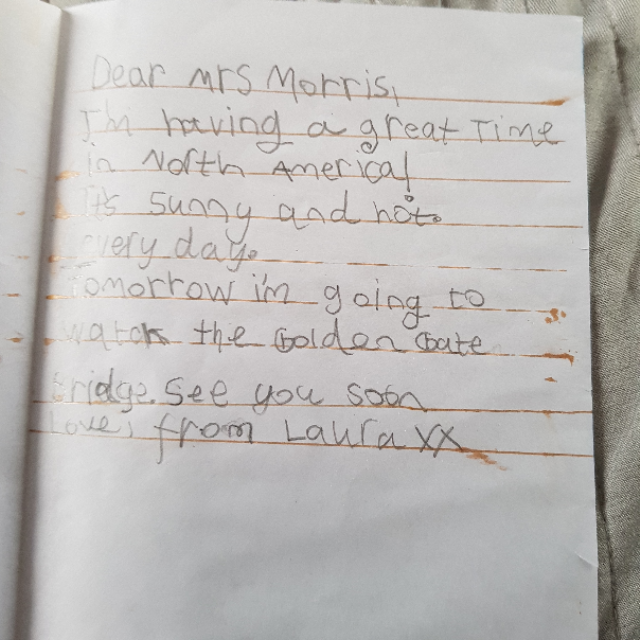 Dear Mrs Morris,
I'm having a great Time
in North America!
It's sunny and hot.
every day.
Tomorrow i'm going to
watch the Golden Gate
Bridge. See you soon
love, from Laura xx